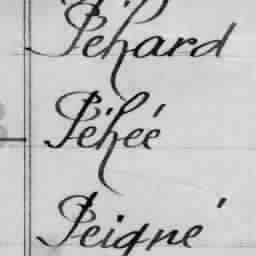 Péhard
Péhée
Peigné